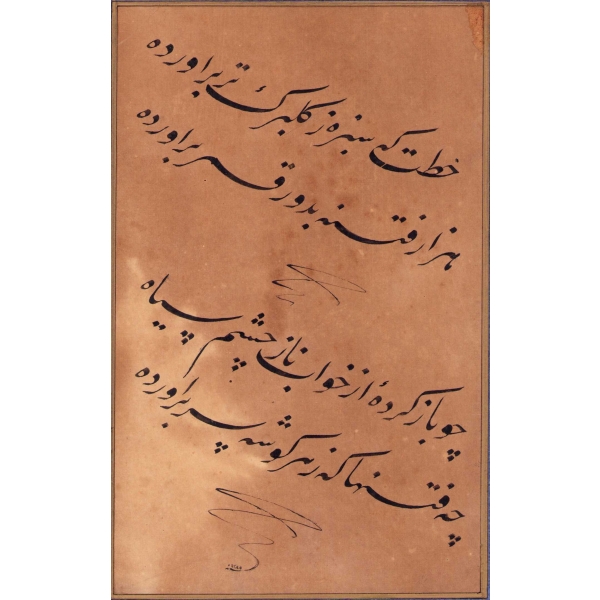 خطت که سبزه ز گلبرگ تر براورده
هزار فتنه بدور قمر براورده
چو باز کردهٔ از خواب ناز چشم سیاه
چه فتنها که ز هر گوشه سر براورده